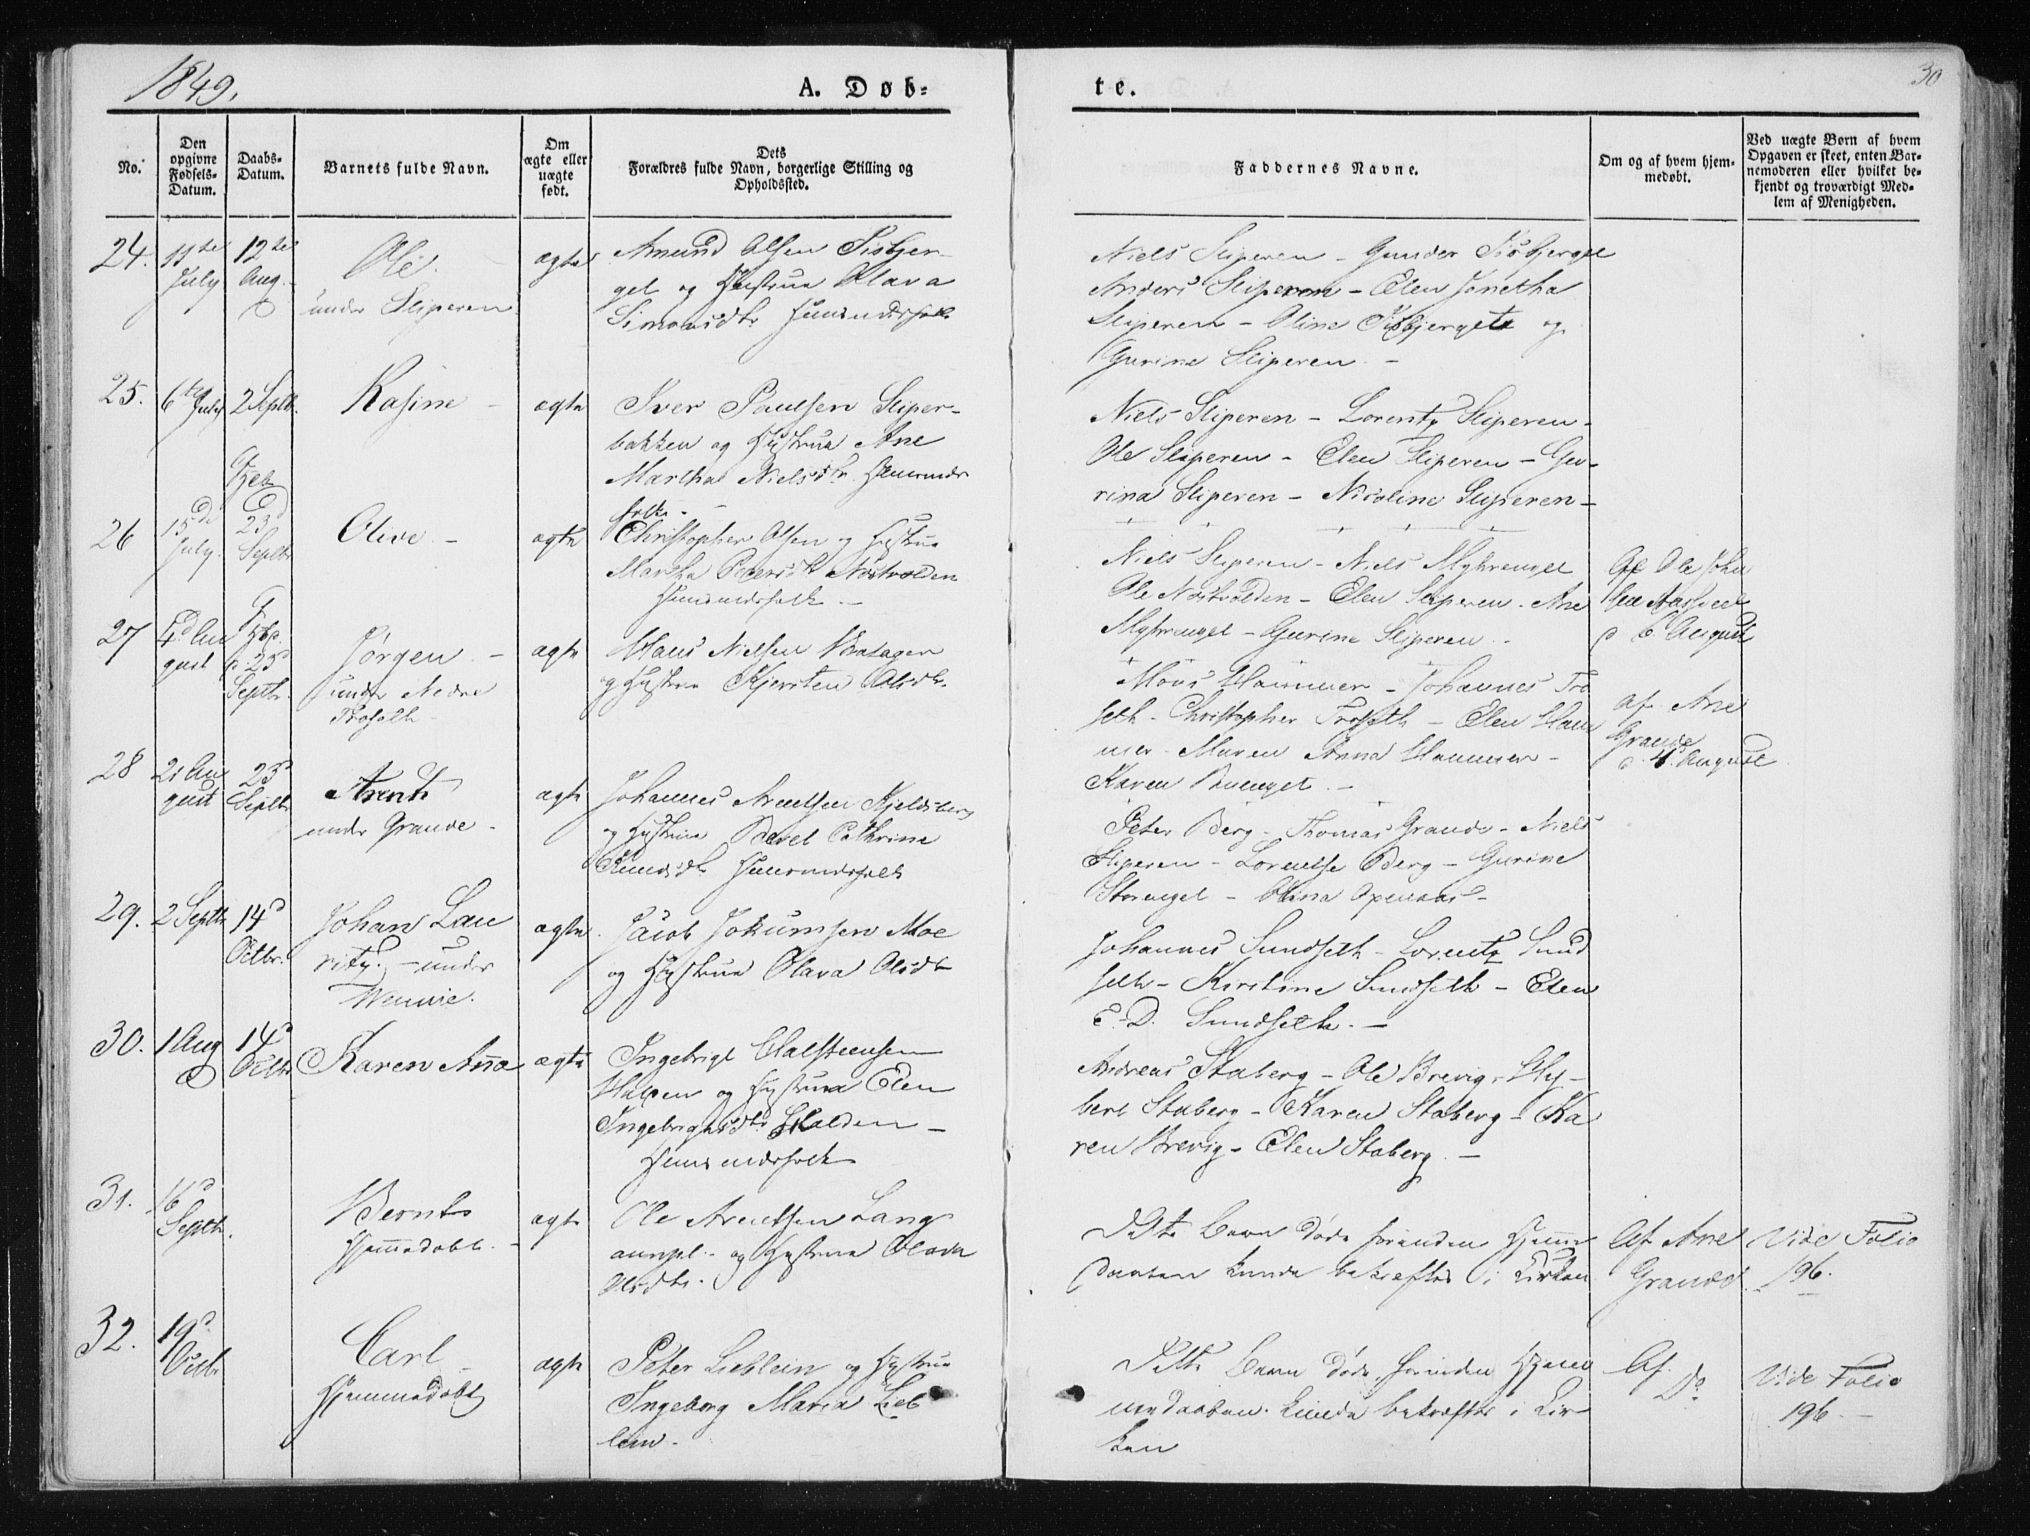 1849.
A. Døb=
te.
30
No.
Den opgivne Fødsels-Datum.
Daabs-Datum.
Barnets fulde Navn.
Om ægte eller uægte født.
Dets Forældres fulde Navn, borgerlige Stilling og Opholdssted.
Faddernes Navne.
Om og af hvem hjemmedøbt.
Ved uægte Børn af hvem Opgaven er skeet, enten Barnemoderen eller hvilket bekjendt og troværdigt Medlem af Menigheden.
24. 11te July 12te Aug. Ole under Sliperen ægte
Amund Olsen
og Hustrue Olava
Simonsdtr Huusmdsfolk
Niels Sliperen - Gunder
Anders Sliperen - Elen Jonetha
Sliperen - Oline og
Gurine Sliperen. -
25. 6te July 2 Septbr. Kasine - ægte
Iver Paulsen Sliper-
bakken og Hustrue Ane
Martha Nielsdtr. Huusmds
folk. -
Niels Sliperen - Lorentz Sliperen -
Ole Sliperen - Elen Sliperen - Gu-
rina Sliperen - Nicoline Sliperen -
26 15de July. 23d Septbr Olive. - ægte
Christopher Olsen og Hustrue
Martha Pedersdtr Nøstvolden
Huusmdsfolk. -
Niels Sliperen - Niels Myhrenget
Ole Nøstvolden - Elen Sliperen - Ane
Myhrenget - Gurine Sliperen -
Af Ole Johan
d 6 August
27 4d August 23d Septbr. Jørgen. - under Nedre Troseth - ægte
Hans Nielsen
og Hustrue Kjersten Olsdtr.
Mons Hammer - Johannes Tro
seth - Christopher Troseth - Elen Ham
mer - Maren Anna Hammer -
Karen -
af Ane
Grande
d. 4 August
28 21 August 23d Septbr Arent under Grande - ægte
Johannes Arentsen Kjeldsberg
og Hustrue Berel Cathrina
Knudsdtr Huusmdsfolk
Peter Berg - Thomas Grande - Niels
Sliperen - Lorentse Berg - Gurine
Storenget - Olina Openaas -
29. 2 Septbr 14d Octbr. Johan Lau
ritz. - under
Wennie. ægte.
Jacob Jokumsen Moe
og Hustrue Olava Olsdtr
Johannes Sundseth - Lorentz Sund
seth - Kirstine Sundseth - Elen
E. D. Sundseth. -
30. 1 Aug 14d Octbr Karen Anna ægte
Ingebrigt Halsteensen
og Hustrue Elen
Ingebrigtsdtr Skalden -
Huusmdsfolk
Andreas Staberg - Ole Brevig -
bert Staberg - Karen Staberg - Ka
ren Brevig - Elen Staberg. -
31. 16d Septbr. Bernt
Hjemmedøbt. - ægte
Ole Arentsen Lang
og Hustrue Olava
Olsdtr.
Dette Barn døde forinden Hjemme
daaben kunde bekræftes i Kirken
Af Ane
Grande
Vide Folio
196.
32. 19d Octbr Carl -
Hjemmedøbt ægte
Peter Lieblein og Hustrue
Ingeborg Maria Lieb
lein -
Dette Barn døde forinden Hjem
medaaben kunde bekræftes i Kir-
ken
Af
Do
Vide Folio
196. -